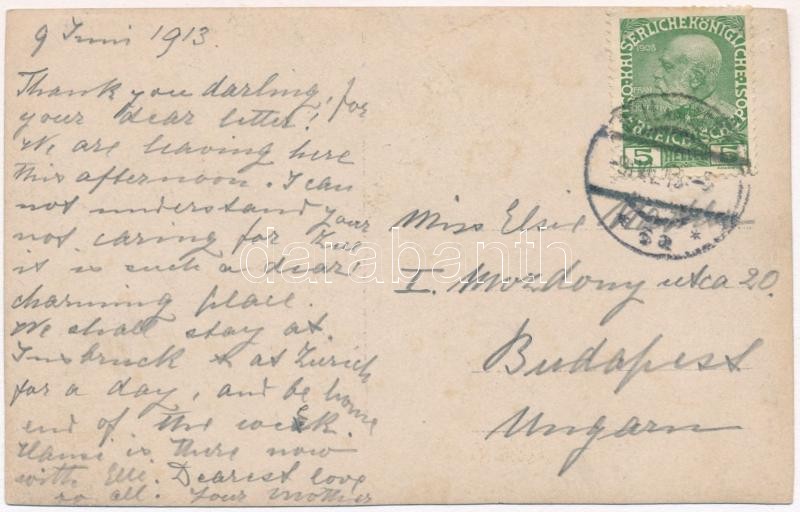 9 Juni 1913.
Thank you darling, for
your dear letter!
We are leaving here
this afternoon. I can
not understand your
not caring for
it is such a dear!
charming place.
We shall stay at
Innsbruck & at Zurich
for a day, and be home
end of the week.
is there now
with Elli. Dearest love
to all. Your Mother
Miss Elsie
I. Mozdony utca 20.
Budapest
Ungarn
KAISERLICHE KÖNIGLICHE ÖSTERREICHISCHE POST
1908
5 5
5a
darabanth